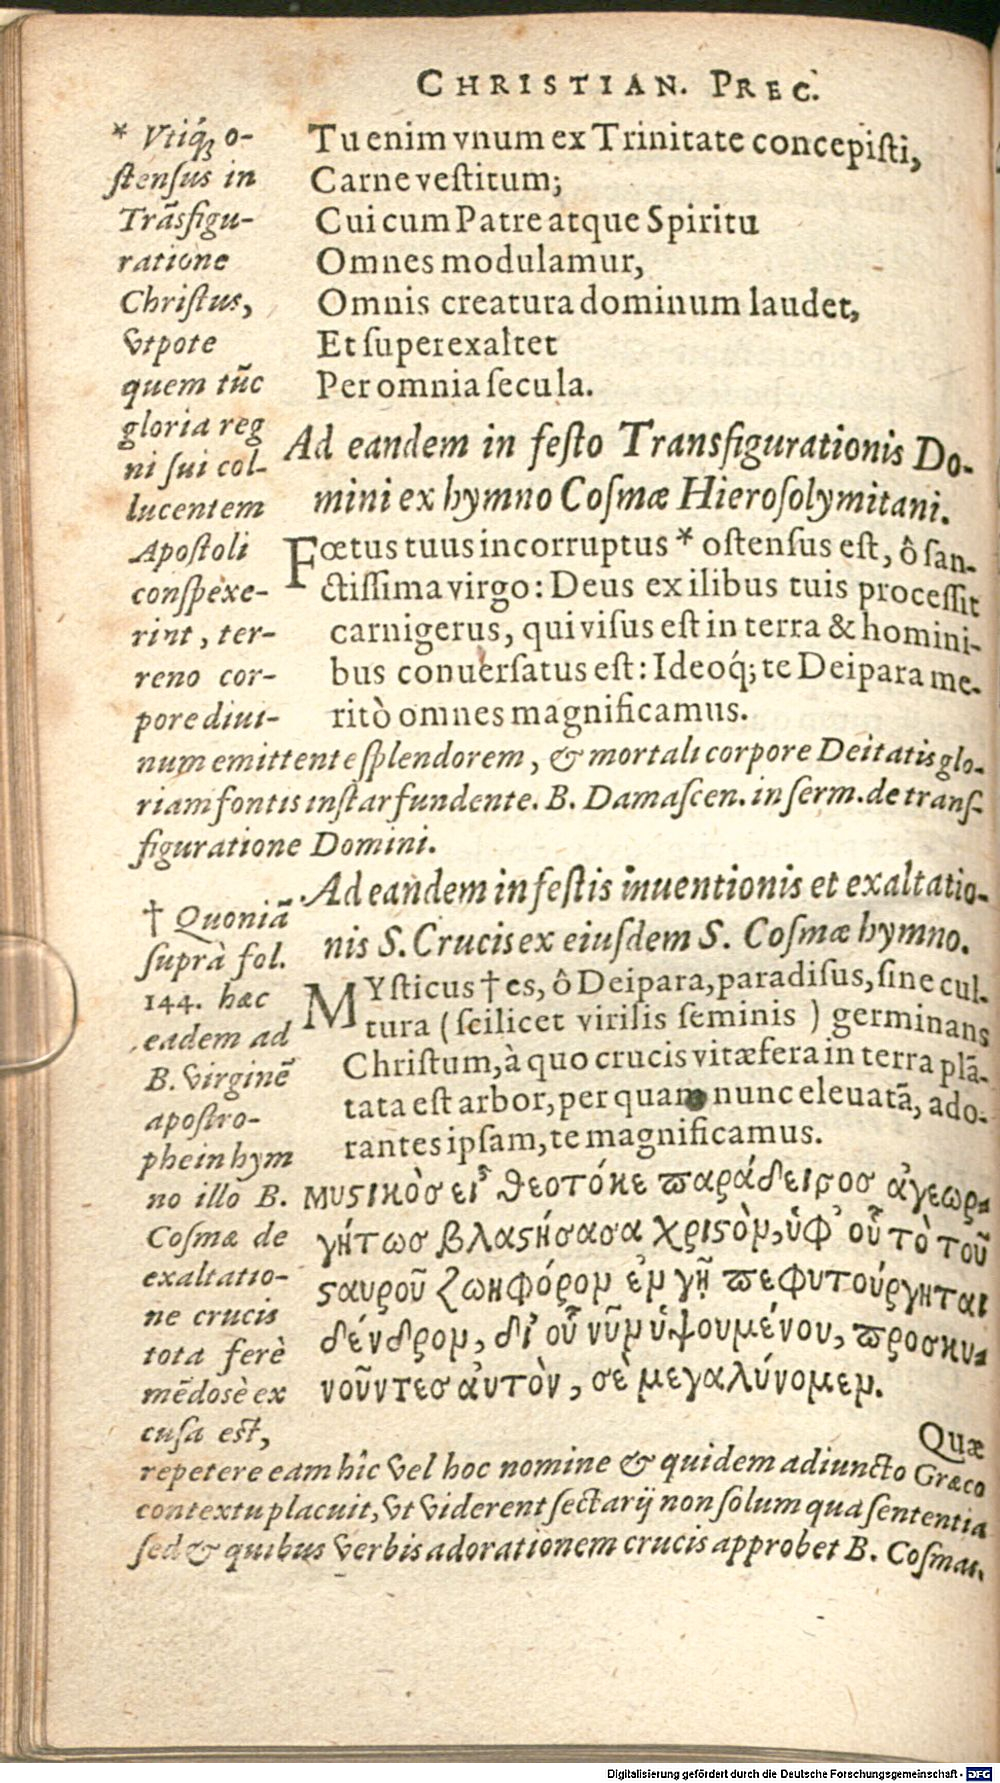 CHRISTIAN. PREC.
Tu enim vnum ex Trinitate concepisti,
Carne vestitum;
Cui cum Patre atque Spiritu
Omnes modulamur,
Omnis creatura dominum laudet,
Et superexaltet
Per omnia secula.
Ad eandem in festo Transfigurationis Do-
mini ex hymno Cosmæ Hierosolymitani.
Fœtus tuus incorruptus * ostensus est, ô san-
ctissima virgo: Deus ex ilibus tuis processit
carnigerus, qui visus est in terra & homini-
bus conuersatus est: Ideoq́; te Deipara me-
ritò omnes magnificamus.
* Vtiq́; o-
stensus in
Trãsfigu-
ratione
Christus,
vtpote
quem tũc
gloria reg
ni sui col-
lucentem
Apostoli
conspexe-
rint, ter-
reno cor-
pore diui-
num emittente splendorem, & mortali corpore Deitatis glo-
riam fontis instar fundente. B. Damascen. in serm. de trans-
figuratione Domini.
Ad eandem in festis inuentionis et exaltatio-
nis S. Crucis ex eiusdem S. Cosmæ hymno.
MYsticus † es, ô Deipara, paradisus, sine cul-
tura (scilicet virilis seminis) germinans
Christum, à quo crucis vitæfera in terra plã-
tata est arbor, per quam nunc eleuatã, ado-
rantes ipsam, te magnificamus.
μυςικὸσ εἶ θεοτόκε ϖαράδεισοσ ἀγεωρ-
γήτωσ βλαςήσασα χριςὸν, ὑφ᾽ οὗ τὸ τοῦ
ςαυροῦ ζωηφόρον ἐν γῇ ϖεφυτούργηται
δένδρον, δι᾽ οὗ νῦν ὑψουμένου, ϖροσκυ-
νοῦντεσ αὐτὸν, σὲ μεγαλύνομεν.
† Quoniã
suprà fol.
144. hæc
eadem ad
B. Virginẽ
apostro-
phe in hym
no illo B.
Cosmæ de
exaltatio-
ne crucis
tota ferè
mẽdosè ex
cusa est,
Quæ
repetere eam hîc vel hoc nomine & quidem adiuncto Græco
contextu placuit, vt viderent sectarij non solum qua sententia
sed & quibus verbis adorationem crucis approbet B. Cosmas.
Digitalisierung gefördert durch die Deutsche Forschungsgemeinschaft - DFG